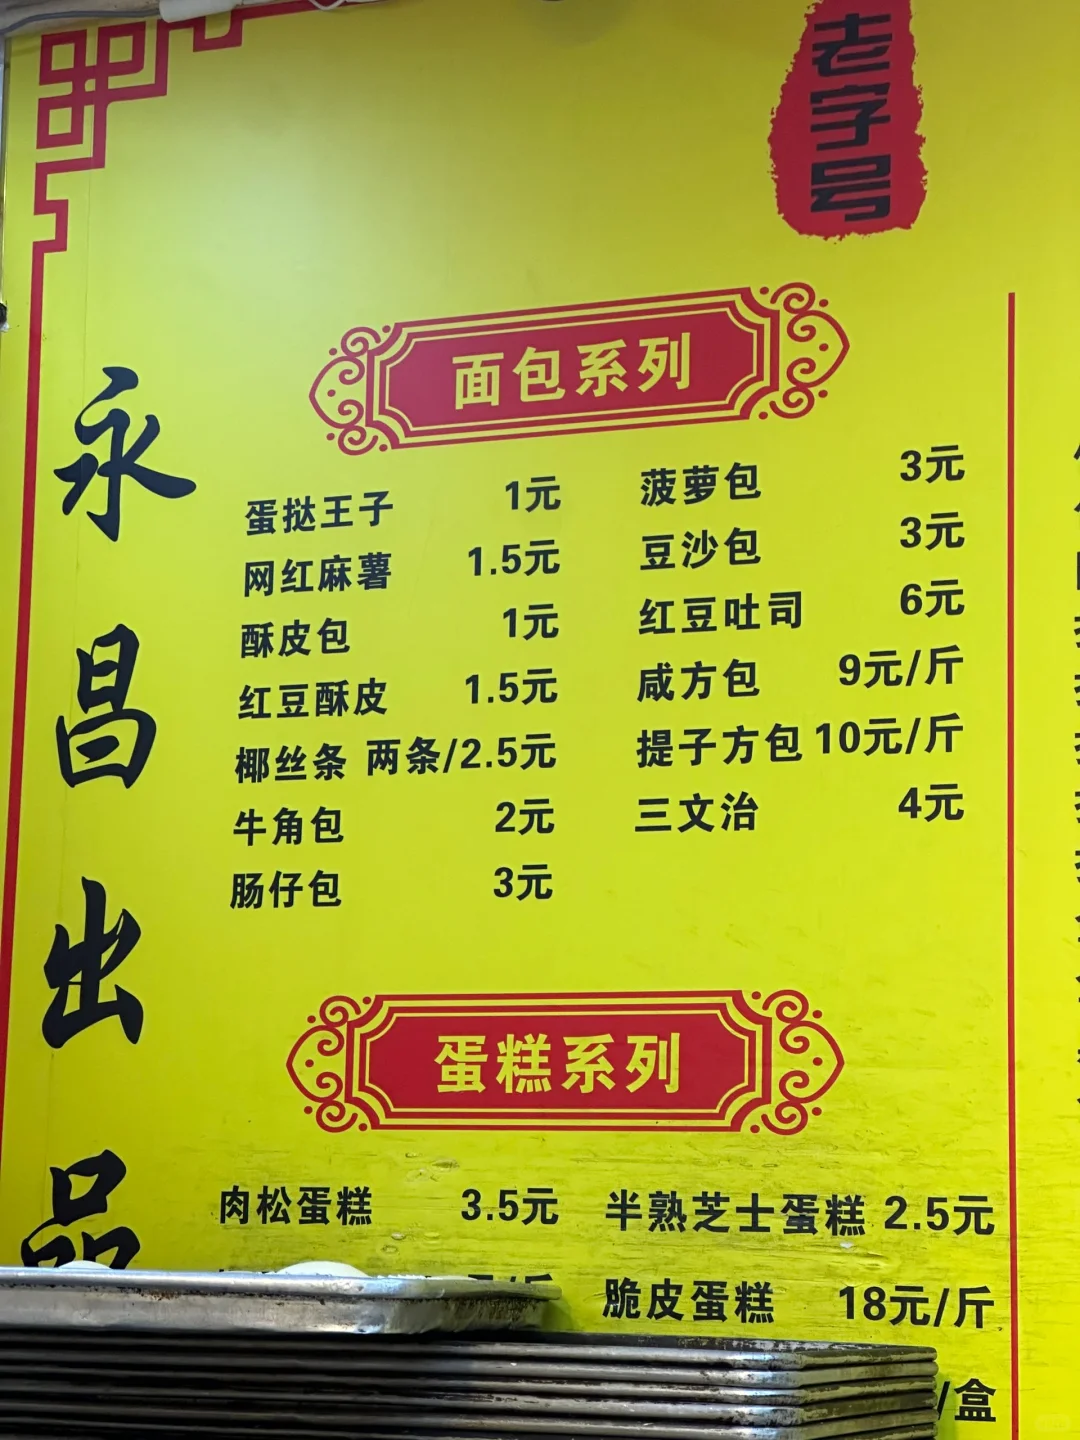 老字号
永昌出品
面包系列
蛋挞王子 1元
网红麻薯 1.5元
酥皮包 1元
红豆酥皮 1.5元
椰丝条 两条/2.5元
牛角包 2元
肠仔包 3元
菠萝包 3元
豆沙包 3元
红豆吐司 6元
咸方包 9元/斤
提子方包 10元/斤
三文治 4元
蛋糕系列
肉松蛋糕 3.5元
半熟芝士蛋糕 2.5元
脆皮蛋糕 18元/斤
/盒